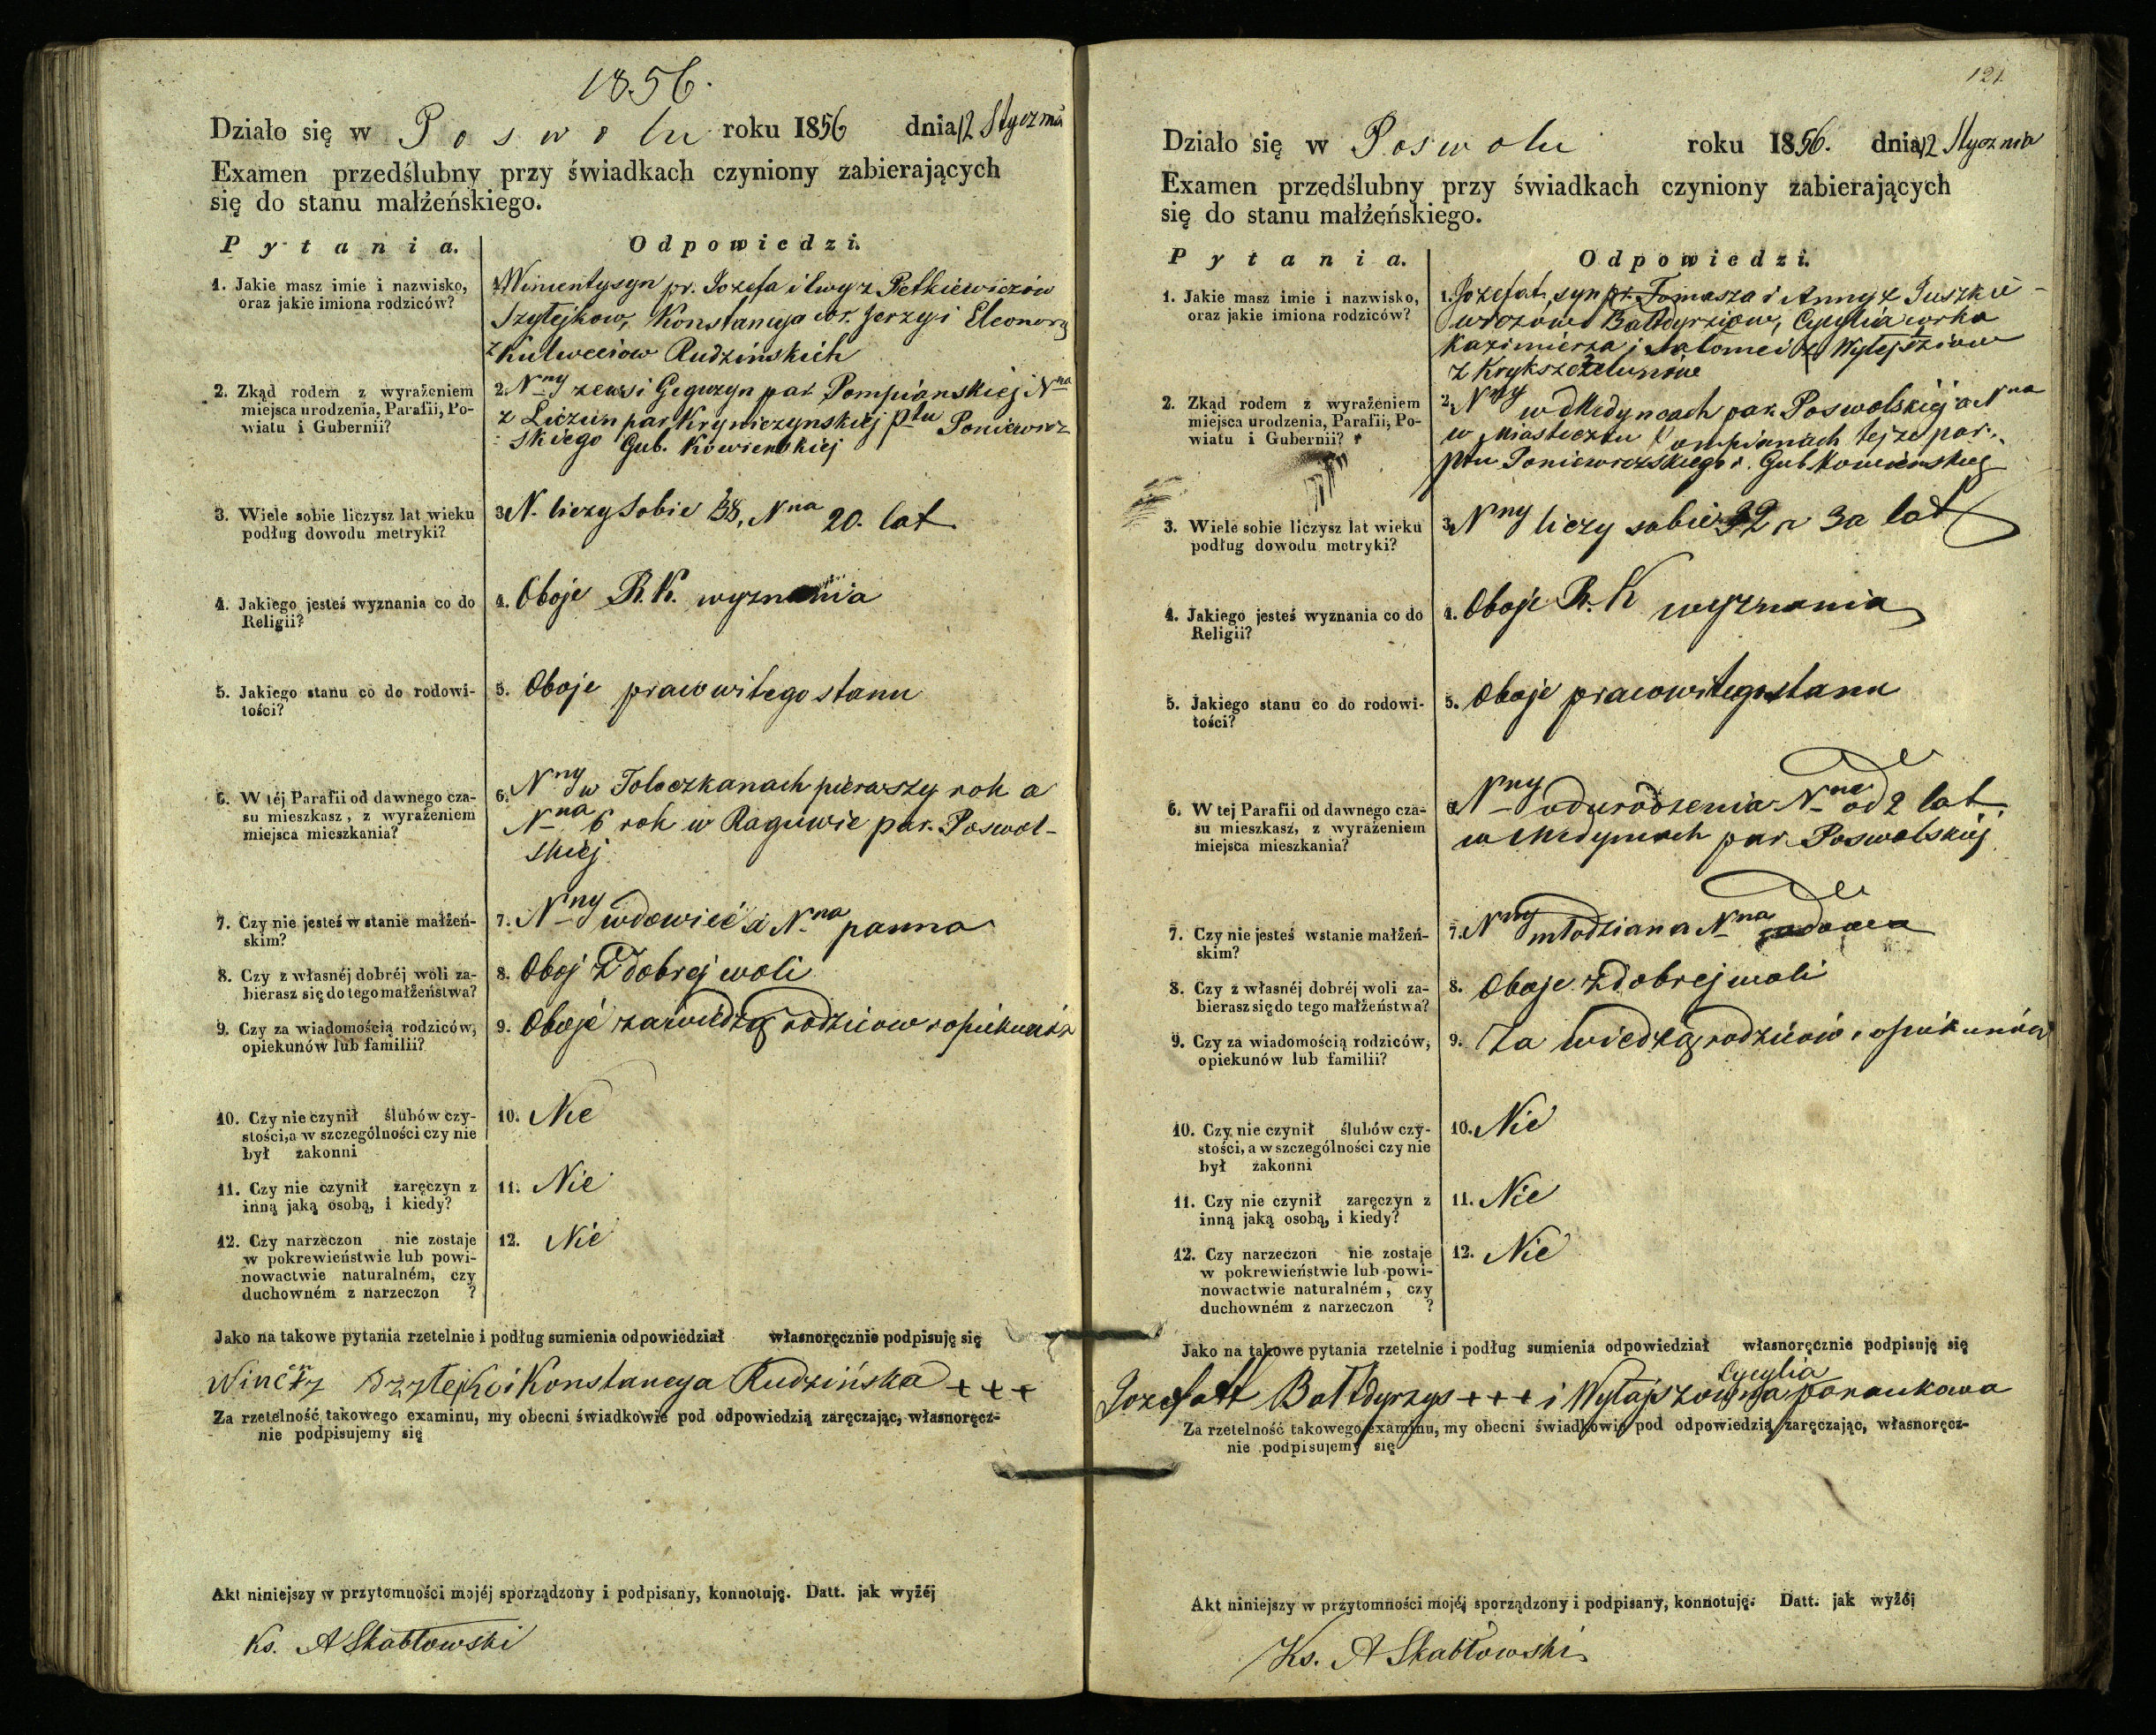 1856.
Działo się w Poswolu roku 1856 dnia 12 Stycznia
Examen przedślubny przy świadkach czyniony zabierających
się do stanu małżeńskiego.
Pytania. Odpowiedzi.
1. Jakie masz imie i nazwisko,
oraz jakie imiona rodziców?
1. Wincenty syn pr. Jozefa i Ewy z Petkiewiczow
Szytejkow, Konstancya cor. Jerzy i Eleonory
z Rudzińskich
2. Zkąd rodem z wyrażeniem
miejsca urodzenia, Parafii, Po-
wiatu i Gubernii?
2. Nny zewsi Geguzyn par. Pompianskiej Nna
z par. Kryniczynskiej Ptu Poniewicz
skiego Gub. Kowienskiej
3. Wiele sobie liczysz lat wieku
podług dowodu metryki?
3. N. liczy sobie 38, Nna 20. lat
4. Jakiego jesteś wyznania co do
Religii?
4. Oboje R. K. wyznania
5. Jakiego stanu co do rodowi-
tości?
5. Oboje pracowitego stanu
6. W téj Parafii od dawnego cza-
su mieszkasz, z wyrażeniem
miejsca mieszkania?
6. Nny w Toloczkanach pierwszy rok a
Nna 6 rok w Raguwie par. Poswol-
skiej
7. Czy nie jesteś w stanie małżeń-
skim?
7. Nny wdowieć a Nna panna
8. Czy z własnéj dobréj woli za-
bierasz się do tego małżeństwa?
8. Oboj z dobrej woli
9. Czy za wiadomością rodziców,
opiekunów lub familii?
9. Oboje za wiedzą rodzicow i opiekunów
10. Czy nie czynił ślubów czy-
stości, a w szczególności czy nie
był zakonni
10. Nie
11. Czy nie czynił zaręczyn z
inną jaką osobą, i kiedy?
11. Nie
12. Czy narzeczon nie zostaje
w pokrewieństwie lub powi-
nowactwie naturalném, czy
duchowném z narzeczon ?
12. Nie
Jako na takowe pytania rzetelnie i podług sumienia odpowiedział własnoręcznie podpisuję się
Szytejko i Konstancya Rudzińska + + +
Za rzetelność takowego examinu, my obecni świadkowie pod odpowiedzią zaręczając, własnoręcz-
nie podpisujemy się
Akt niniejszy w przytomności mojéj sporządzony i podpisany, konnotuję. Datt. jak wyżéj
Ks. A Skabłowski
121.
Działo się w Poswolu roku 1856. dnia 12 Stycznia
Examen przedślubny przy świadkach czyniony zabierających
się do stanu małżeńskiego.
Pytania. Odpowiedzi.
1. Jakie masz imie i nazwisko,
oraz jakie imiona rodziców?
1. Jozefat, syn pr. Tomasza i Anny z Juszkie-
wiczow Bałtdyrziow, Cycylia corka
Kazimierza i Salomei z Wytejsziow
2. Zkąd rodem z wyrażeniem
miejsca urodzenia, Parafii, Po-
wiatu i Gubernii?
2. Nny w Medyncach par. Poswolskiej a Nna
w Miasteczku Pompianach tejze par.
ptu Poniewiezskiego. Gub. Kowienskiej
3. Wiele sobie liczysz lat wieku
podług dowodu metryki?
3. Nny liczy sobie 32 a 30 lat
4. Jakiego jesteś wyznania co do
Religii?
4. Oboje R. K wyznania
5. Jakiego stanu co do rodowi-
tości?
5. Oboje pracowitego stanu
6. W tej Parafii od dawnego cza-
su mieszkasz, z wyrażeniem
miejsca mieszkania?
6. Nny od urodzenia Nna od 2 lat
w Medyncach par. Poswolskiéj
7. Czy nie jesteś w stanie małżeń-
skim?
7. Nny młodzian a Nna wdowa
8. Czy z własnéj dobréj woli za-
bierasz się do tego małżeństwa?
8. Oboje z dobrej woli
9. Czy za wiadomością rodziców,
opiekunów lub familii?
9. Za wiedzą rodziców i opiekunów
10. Czy nie czynił ślubów czy-
stości, a w szczególności czy nie
był zakonni
10. Nie
11. Czy nie czynił zaręczyn z
inną jaką osobą, i kiedy?
11. Nie
12. Czy narzeczon nie zostaje
w pokrewieństwie lub powi-
nowactwie naturalném, czy
duchowném z narzeczon ?
12. Nie
Jako na takowe pytania rzetelnie i podług sumienia odpowiedział własnoręcznie podpisuję się
Cycylia
Jozefatt Bałtdyrzys + + + i
Za rzetelność takowego examinu, my obecni świadkowie pod odpowiedzią zaręczając, własnoręcz-
nie podpisujemy się
Akt niniejszy w przytomności mojéj sporządzony i podpisany, konnotuję. Datt. jak wyżéj
Ks. A Skabłowski